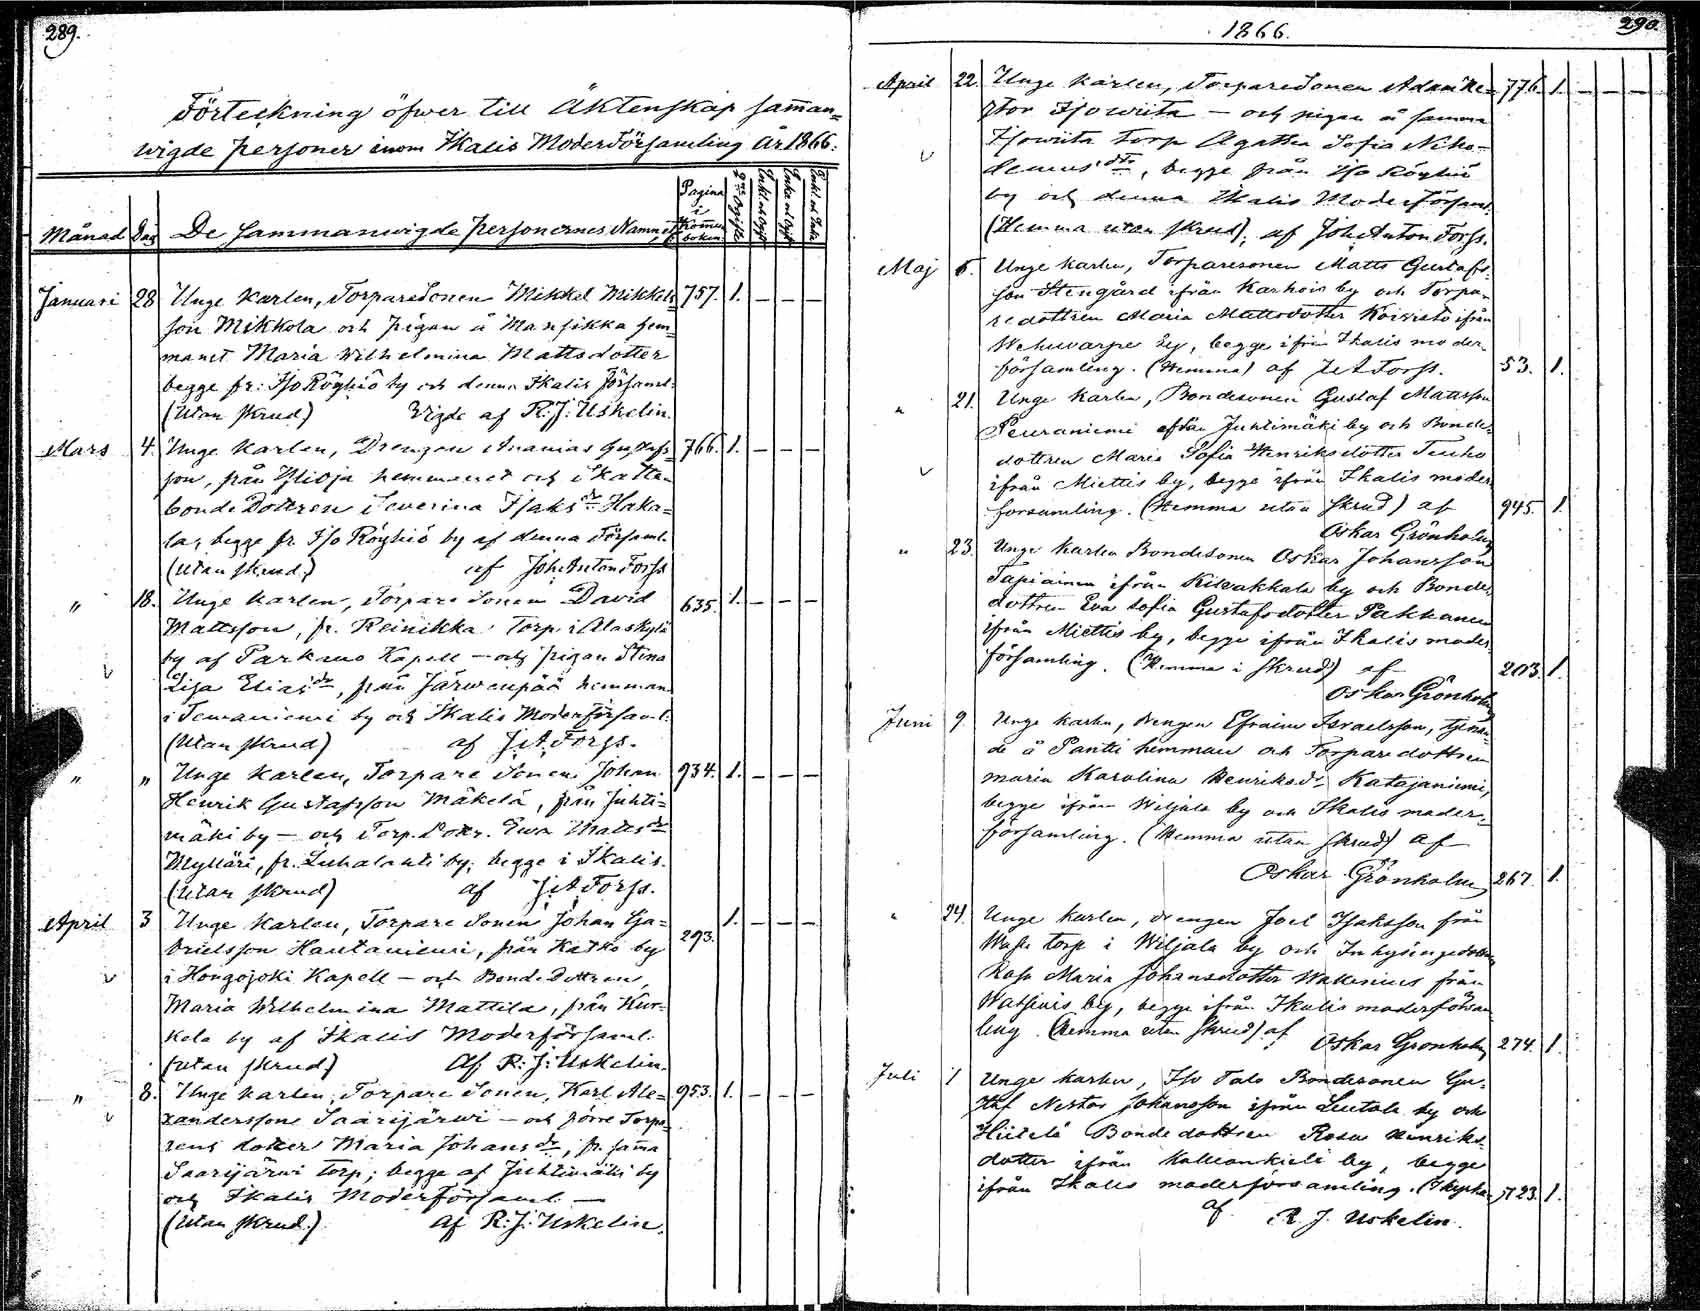 289.
Förteckning öfwer till Äktenskap samman=
wigde personer inom Ikalis Moder Församling År 1866.
Månad Dag De sammanwigde personernes Namn Pagina i Komm: boken
Januari 28 Unge Karlen, Torpare Sonen Mikkel Mikkels= 757. 1. — — —
son Mikkola och pigan å Mansikka hem=
manet Maria Wilhelmina Mattsdotter
begge fr: Iso Röyhiö by och denna Ikalis Församl:
(Utan skrud) Vigde af R: J: Uskelin.
Mars 4. Unge Karlen, Drengen Ananias Gustafs= 766. 1. — — —
son, från Ylioja hemmanet och Skatte=
bonde Dottren Severina Isaks dr Haka=
la, begge fr. Iso Röyhiö by af denna Församl.
(Utan skrud.) af Joh: Anton Forss
" 18. Unge Karlen, Torpare Sonen David 635. 1. — — —
Mattsson, fr. Reinikka Torp i Alaskylä
by af Parkano Kapell — och pigan Stina
Lisa Elias dr, från Järwenpää hemman
i by och Ikalis Moderförsaml:
(Utan skrud) af J. A. Forss.
" " Unge Karlen, Torpare Sonen Johan 934. 1. — — —
Henrik Gustafsson Mäkelä, från Juhti=
mäki by — och Torp. Dottr. Ewa Matts dr
Mylläri, fr. Luhalahti by, begge i Ikalis.
(Utan skrud) af J. A. Forss.
April 3 Unge Karlen, Torpare Sonen Johan Ga= 293. 1. — — —
brielsson Hautaniemi, från Katko by
i Hongojoki Kapell — och Bonde Dottren,
Maria Wilhelmina Mattila, från Kur=
kela by af Ikalis Moderförsaml.
(utan skrud) Af R: J: Uskelin.
" 8. Unge Karlen, Torpare Sonen, Karl Ale= 953. 1. — — —
xandersson Saarijärwi — och förre Torpa=
rens dotter Maria Johans dr, fr. samma
Saarijärwi Torp; begge af Juhtimäki by
och Ikalis Moder Församl. —
(Utan skrud.) af R: J: Uskelin.
1866. 290.
April 22. Unge Karlen, Torpare Sonen Adam Ne= 776. 1. — — —
stor Isowiita — och pigan å samma
Isowiita torp Agatha Sofia Niko=
demus dtr, begge från Iso Röyhiö
by och denna Ikalis Moderförsaml.
(Hemma utan skrud), af Joh: Anton Forss.
Maj 6. Unge Karlen, Torparesonen Matts Gustafs=
son Stengård ifrån Karhois by och Torpa=
redottren Maria Mattsdotter Koivisto ifrån
Wehuvarpe by, begge ifrån Ikalis moder=
församling. (Hemma) af J. A. Forss. 53. 1.
" 21. Unge Karlen, Bondesonen Gustaf Mattsson
Peuraniemi ifrån Juhtimäki by och Bonde=
dottren Maria Sofia Henriksdotter Teuho
ifrån Miettis by, begge ifrån Ikalis moder=
församling. (Hemma utan skrud) af 945. 1.
Oskar Grönholm
" 23. Unge Karlen Bondesonen Oskar Johansson
Tapiainen ifrån Kilvakkala by och Bonde=
dottren Eva Sofia Gustafsdotter Pakkanen
ifrån Miettis by, begge ifrån Ikalis moder=
församling. (Hemma i skrud) af 203. 1.
Oskar Grönholm
Juni 9 Unge Karlen, drengen Efraim Israelsson, tjenan=
de å Pantti hemman och Torpare dottren
maria Karolina Henriksdr Katajaniemi,
begge ifrån Wiljala by och Ikalis moder=
församling. (Hemma utan skrud) af
Oskar Grönholm 267. 1.
" 24. Unge Karlen, drengen Joel Isaksson från
torp i Wiljala by och Inhysingedottren
Rosa Maria Johansdotter Wallenius från
by, begge ifrån Ikalis moderförsam
ling. (Hemma utan skrud) af Oskar Grönholm 274. 1.
Juli 1 Unge Karlen, Iso Talo Bondesonen Gu=
staf Nestor Johansson ifrån Leutola by och
Bonde dottren Rosa Henriks=
dotter ifrån by, begge
ifrån Ikalis moderförsamling. 723. 1.
af R. J. Uskelin.